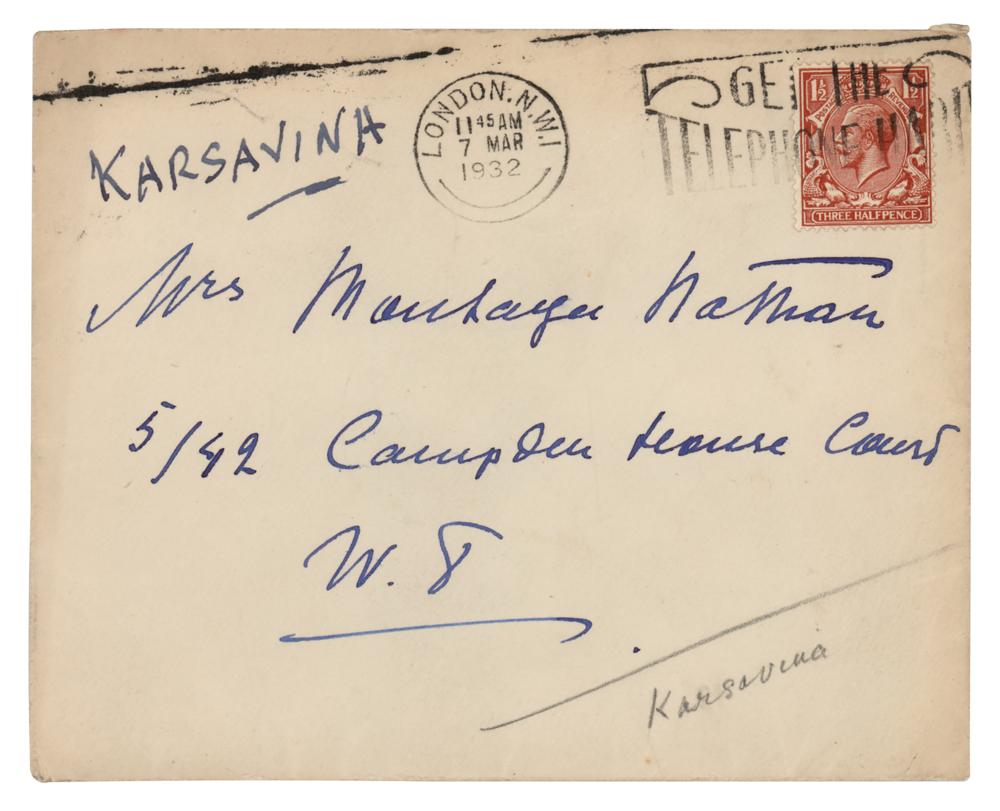 KARSAVINA
LONDON. N.W.1
11 45 AM
7 MAR
1932
GET THE
TELEPHONE HABIT
1½ 1½
THREE HALFPENCE
Mrs Montagu Nathan
5/42 Campden House Court
W. 8
Karsavina